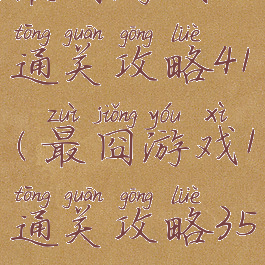 tōng guān gōng lüè
通关攻略41
zuì jiǒng yóu xì
(最囧游戏1
tōng guān gōng lüè
通关攻略35